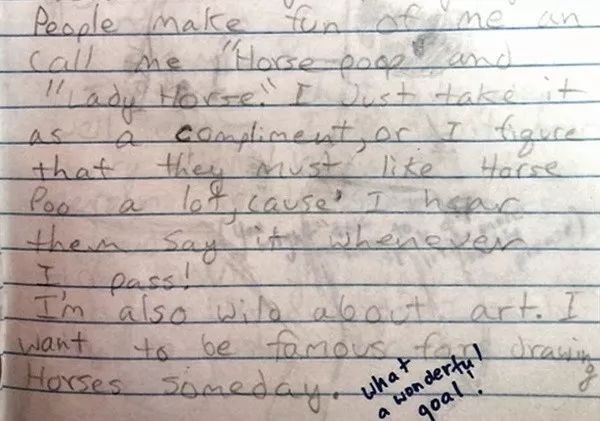 People make fun of me an
call me "Horse poop" and
"Lady Horse." I Just take it
as a compliment, or I figure
that they must like Horse
Poo a lot, cause' I hear
them say it whenever
I pass!
I'm also wild about art. I
want to be famous for drawing
Horses someday.
what
a wonderful
goal!